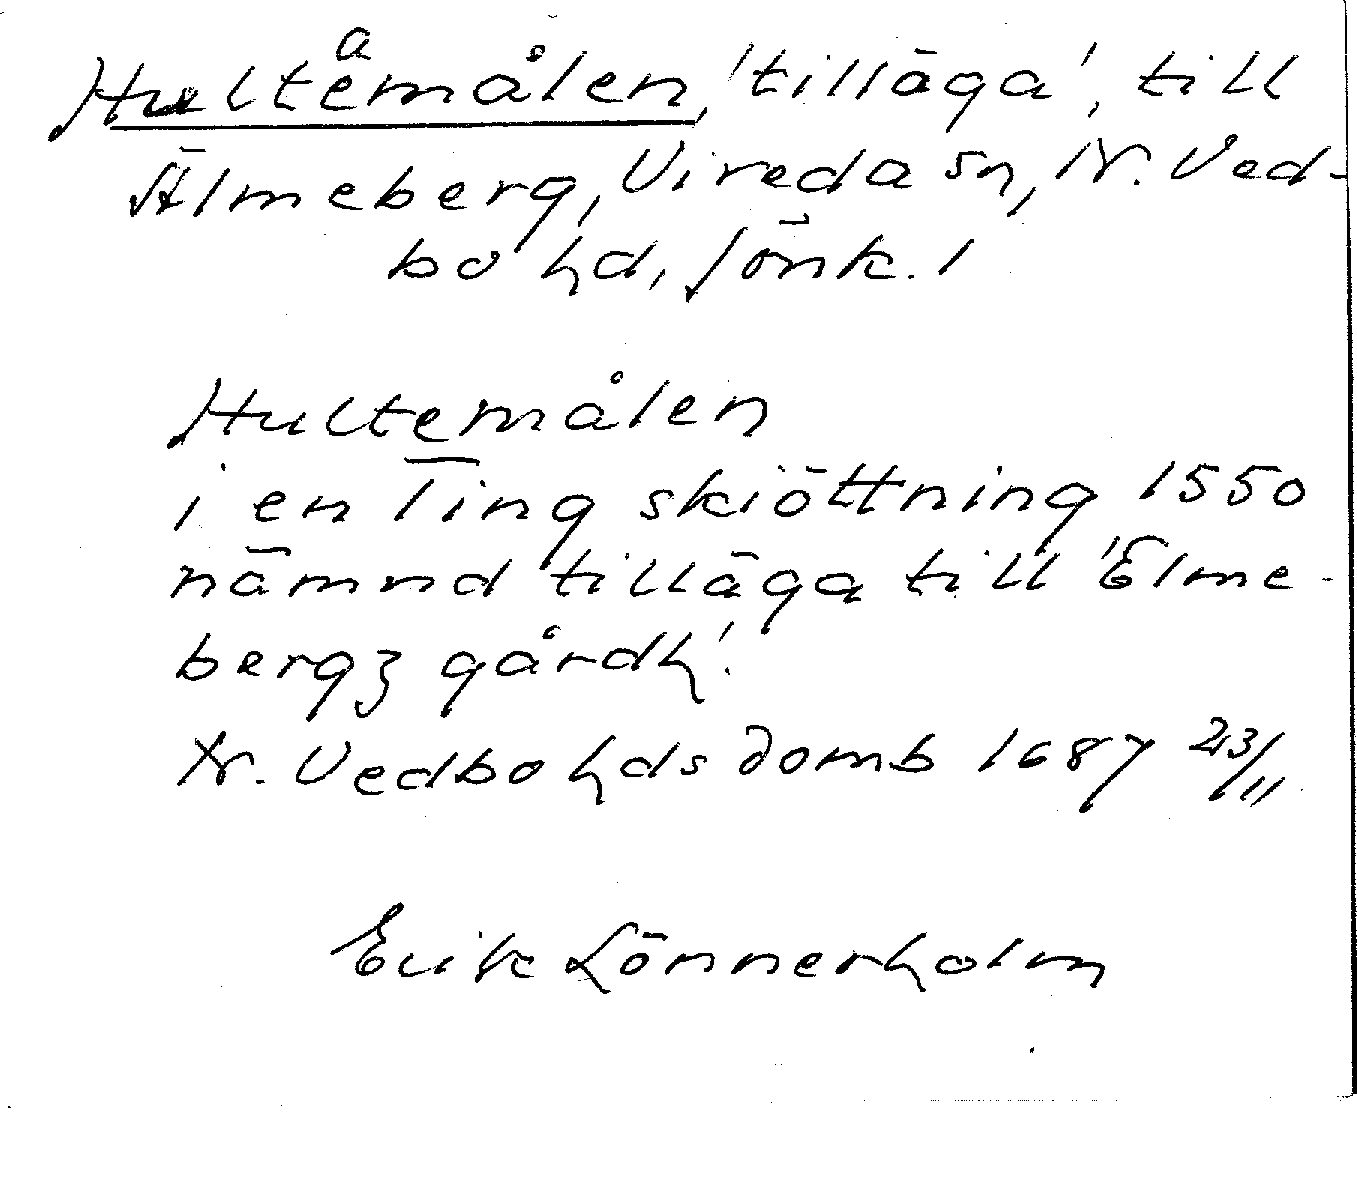 a
Hultemålen, 'tillāga', till
Älmeberg, Vireda sn, N. Ved-
bo hd, Jönk. l
Hultemålen
i en Ting skiöttning 1550
nämnd tilläga till 'Elme-
bergz gårdh'.
N. Vedbo hds domb 1687 23/11
Erik Lönnerholm